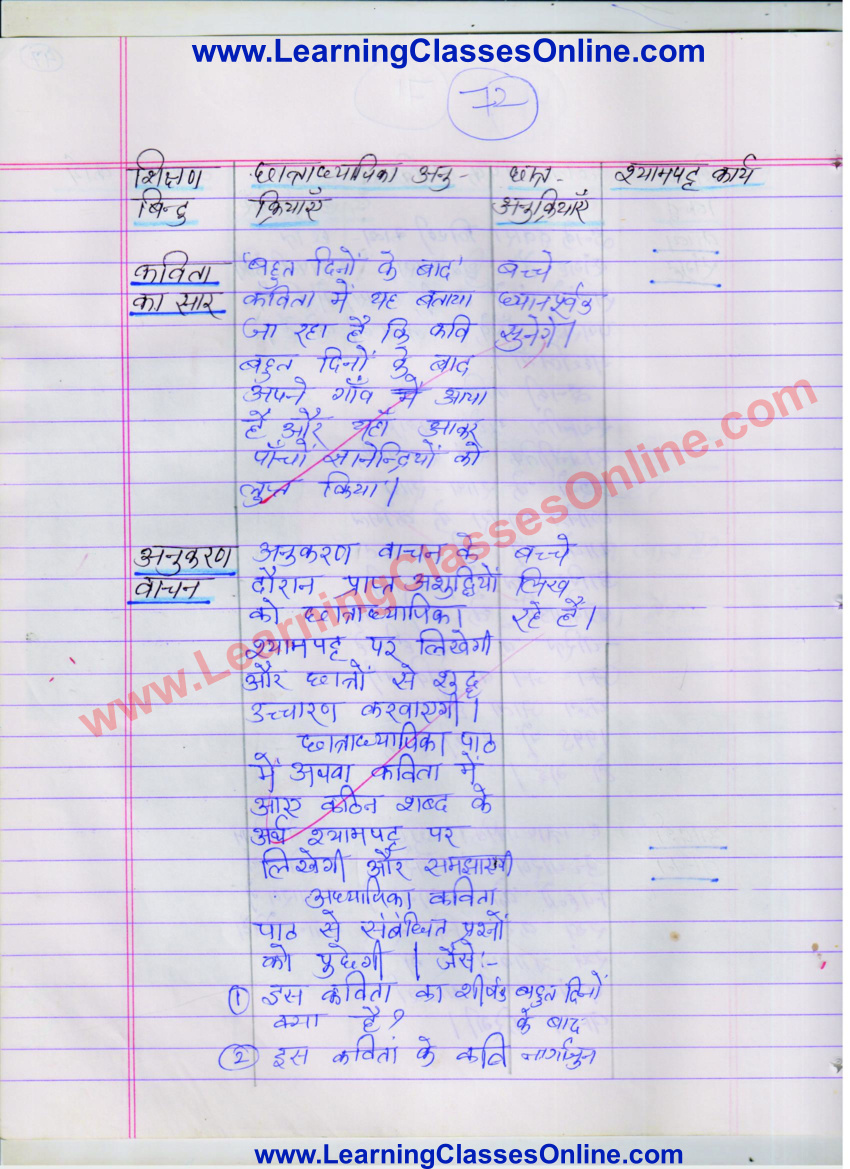 www.LearningClassesOnline.com
72
शिक्षण छात्राध्यापिका अनु- छात्र- श्यामपट्ट कार्य
बिन्दु क्रियाएँ अनुक्रियाएँ
कविता 'बहुत दिनों के बाद' बच्चे
का सार कविता में यह बताया ध्यानपूर्वक
जा रहा है कि कवि सुनेगे।
बहुत दिनों के बाद
अपने गाँव में आया
है और यहाँ आकर
पाँचों ज्ञानेन्द्रियों को
तृप्त किया।
अनुकरण अनुकरण वाचन के बच्चे
वाचन दौरान प्राप्त अशुद्धियों लिख
को छात्राध्यापिका रहे है।
श्यामपट्ट पर लिखेगी
और छात्रों से शुद्ध
उच्चारण करवाएगी।
छात्राध्यापिका पाठ
में अथवा कविता में
आए कठिन शब्द के
अर्थ श्यामपट्ट पर
लिखेगी और समझाएगी
अध्यापिका कविता
पाठ से संबंधित प्रश्नों
को पुछेगी। जैसे:-
① इस कविता का शीर्षक बहुत दिनों
क्या है? के बाद
② इस कविता के कवि नागार्जुन
www.LearningClassesOnline.com
www.LearningClassesOnline.com